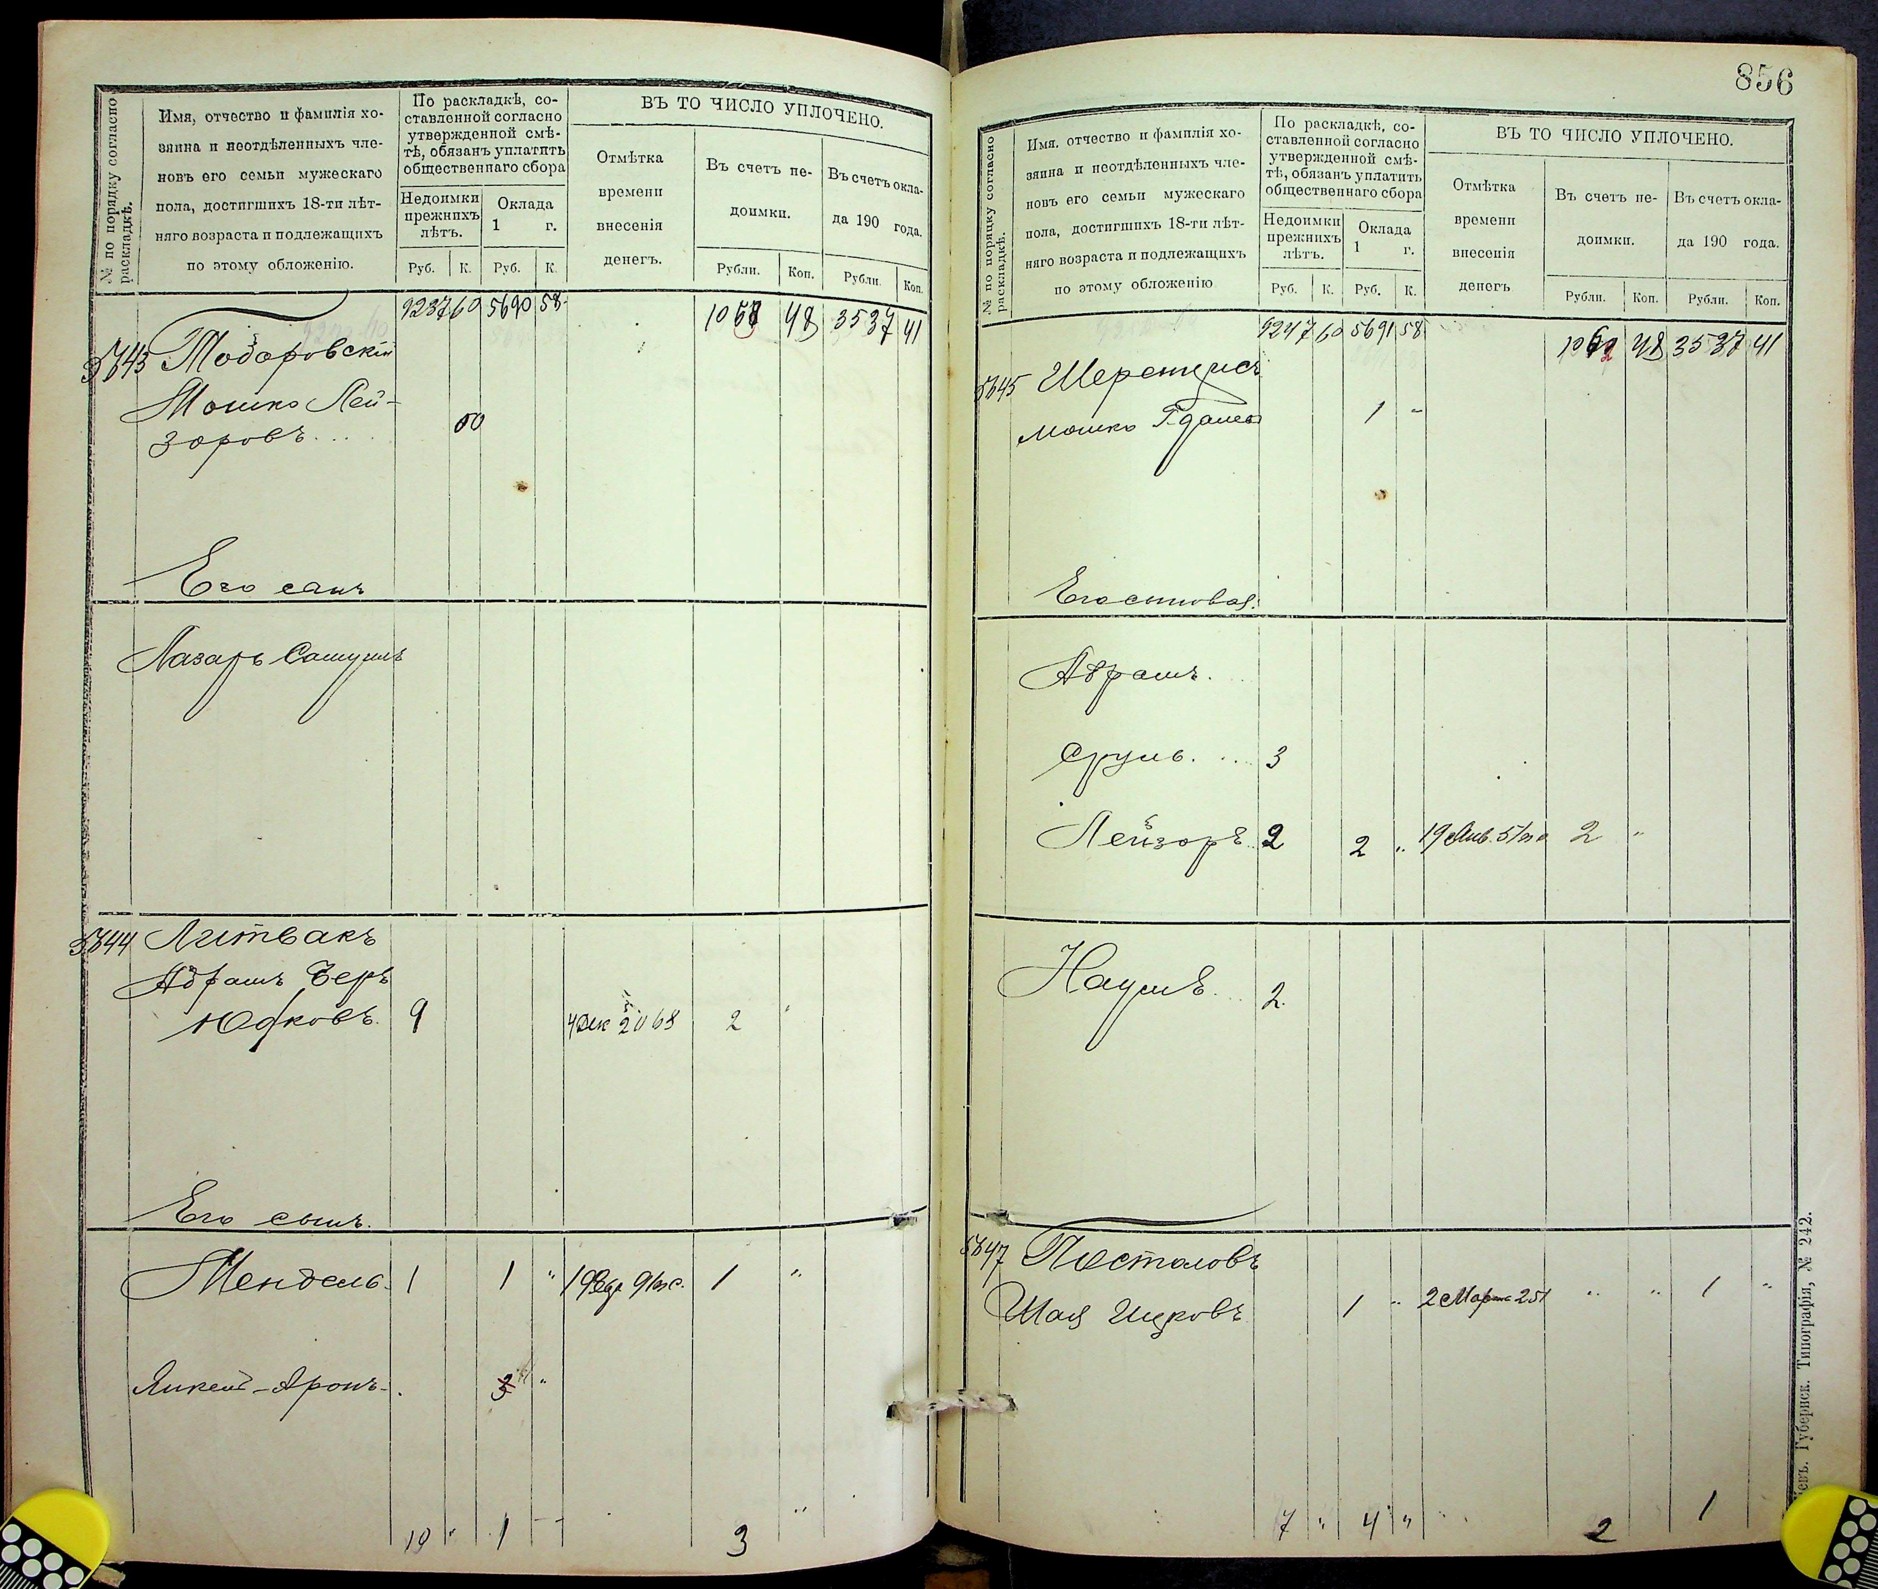 № по порядку согласно раскладкѣ.
Имя, отчество и фамилія хо-
зяина и неотдѣленныхъ чле-
новъ его семьи мужескаго
пола, достигшихъ 18-ти лѣт-
няго возраста и подлежащихъ
по этому обложенію.
По раскладкѣ, со-
ставленной согласно
утвержденной смѣ-
тѣ, обязанъ уплатить
общественнаго сбора
Недоимки
прежнихъ
лѣтъ.
Оклада
1 г.
Руб. К. Руб. К.
ВЪ ТО ЧИСЛО УПЛОЧЕНО.
Отмѣтка
времени
внесенія
денегъ.
Въ счетъ не-
доимки.
Въ счетъ окла-
да 190 года.
Рубли. Коп. Рубли. Коп.
9237 60 5690 58 48 3537 41
5843 Тодоровскій
Мошко Лей-
зоровъ 50
Его сынъ
Лазарь Самуилъ
5844 Литвакъ
Абрамъ Беръ
Юдковъ. 9 2
Его сынъ.
Мендель 1 1 " 1 "
Янкель-Аронъ
19 " 1 3 "
856
№ по порядку согласно раскладкѣ.
Имя, отчество и фамилія хо-
зяина и неотдѣленныхъ чле-
новъ его семьи мужескаго
пола, достигшихъ 18-ти лѣт-
няго возраста и подлежащихъ
по этому обложенію
По раскладкѣ, со-
ставленной согласно
утвержденной смѣ-
тѣ, обязанъ уплатить
общественнаго сбора
Недоимки
прежнихъ
лѣтъ.
Оклада
1 г.
Руб. К. Руб. К.
ВЪ ТО ЧИСЛО УПЛОЧЕНО.
Отмѣтка
времени
внесенія
денегъ
Въ счетъ не-
доимки.
Въ счетъ окла-
да 190 года.
Рубли. Коп. Рубли. Коп.
9247 60 5691 58 48 3537 41
5845
Мошко 1 "
Его сыновья.
Абрамъ.
Сруль. 3
Лейзоръ 2 2 " 2 "
Наумъ 2.
5847 Посталовъ
Шая Ицковъ 1 " 2 Марта 251 " " 1 "
7 " 4 " 2 1
Губернск. Типографія, № 242.